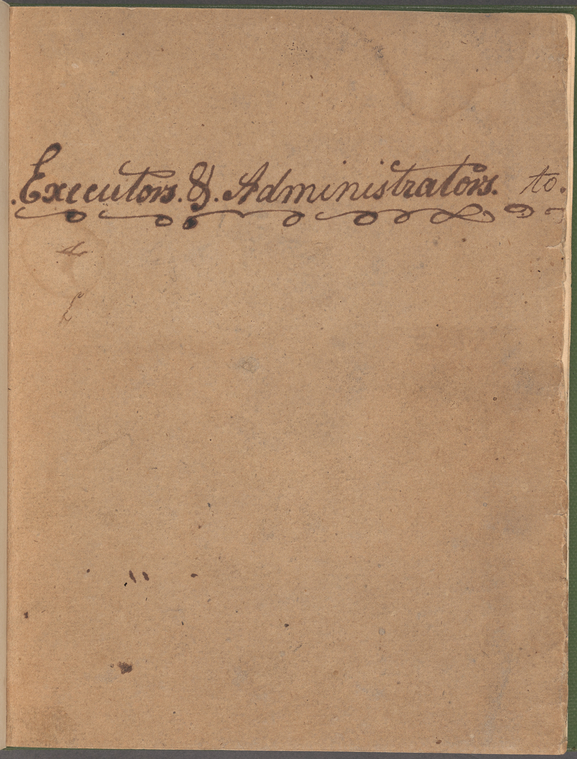 .Executors. &. Administrators. to.